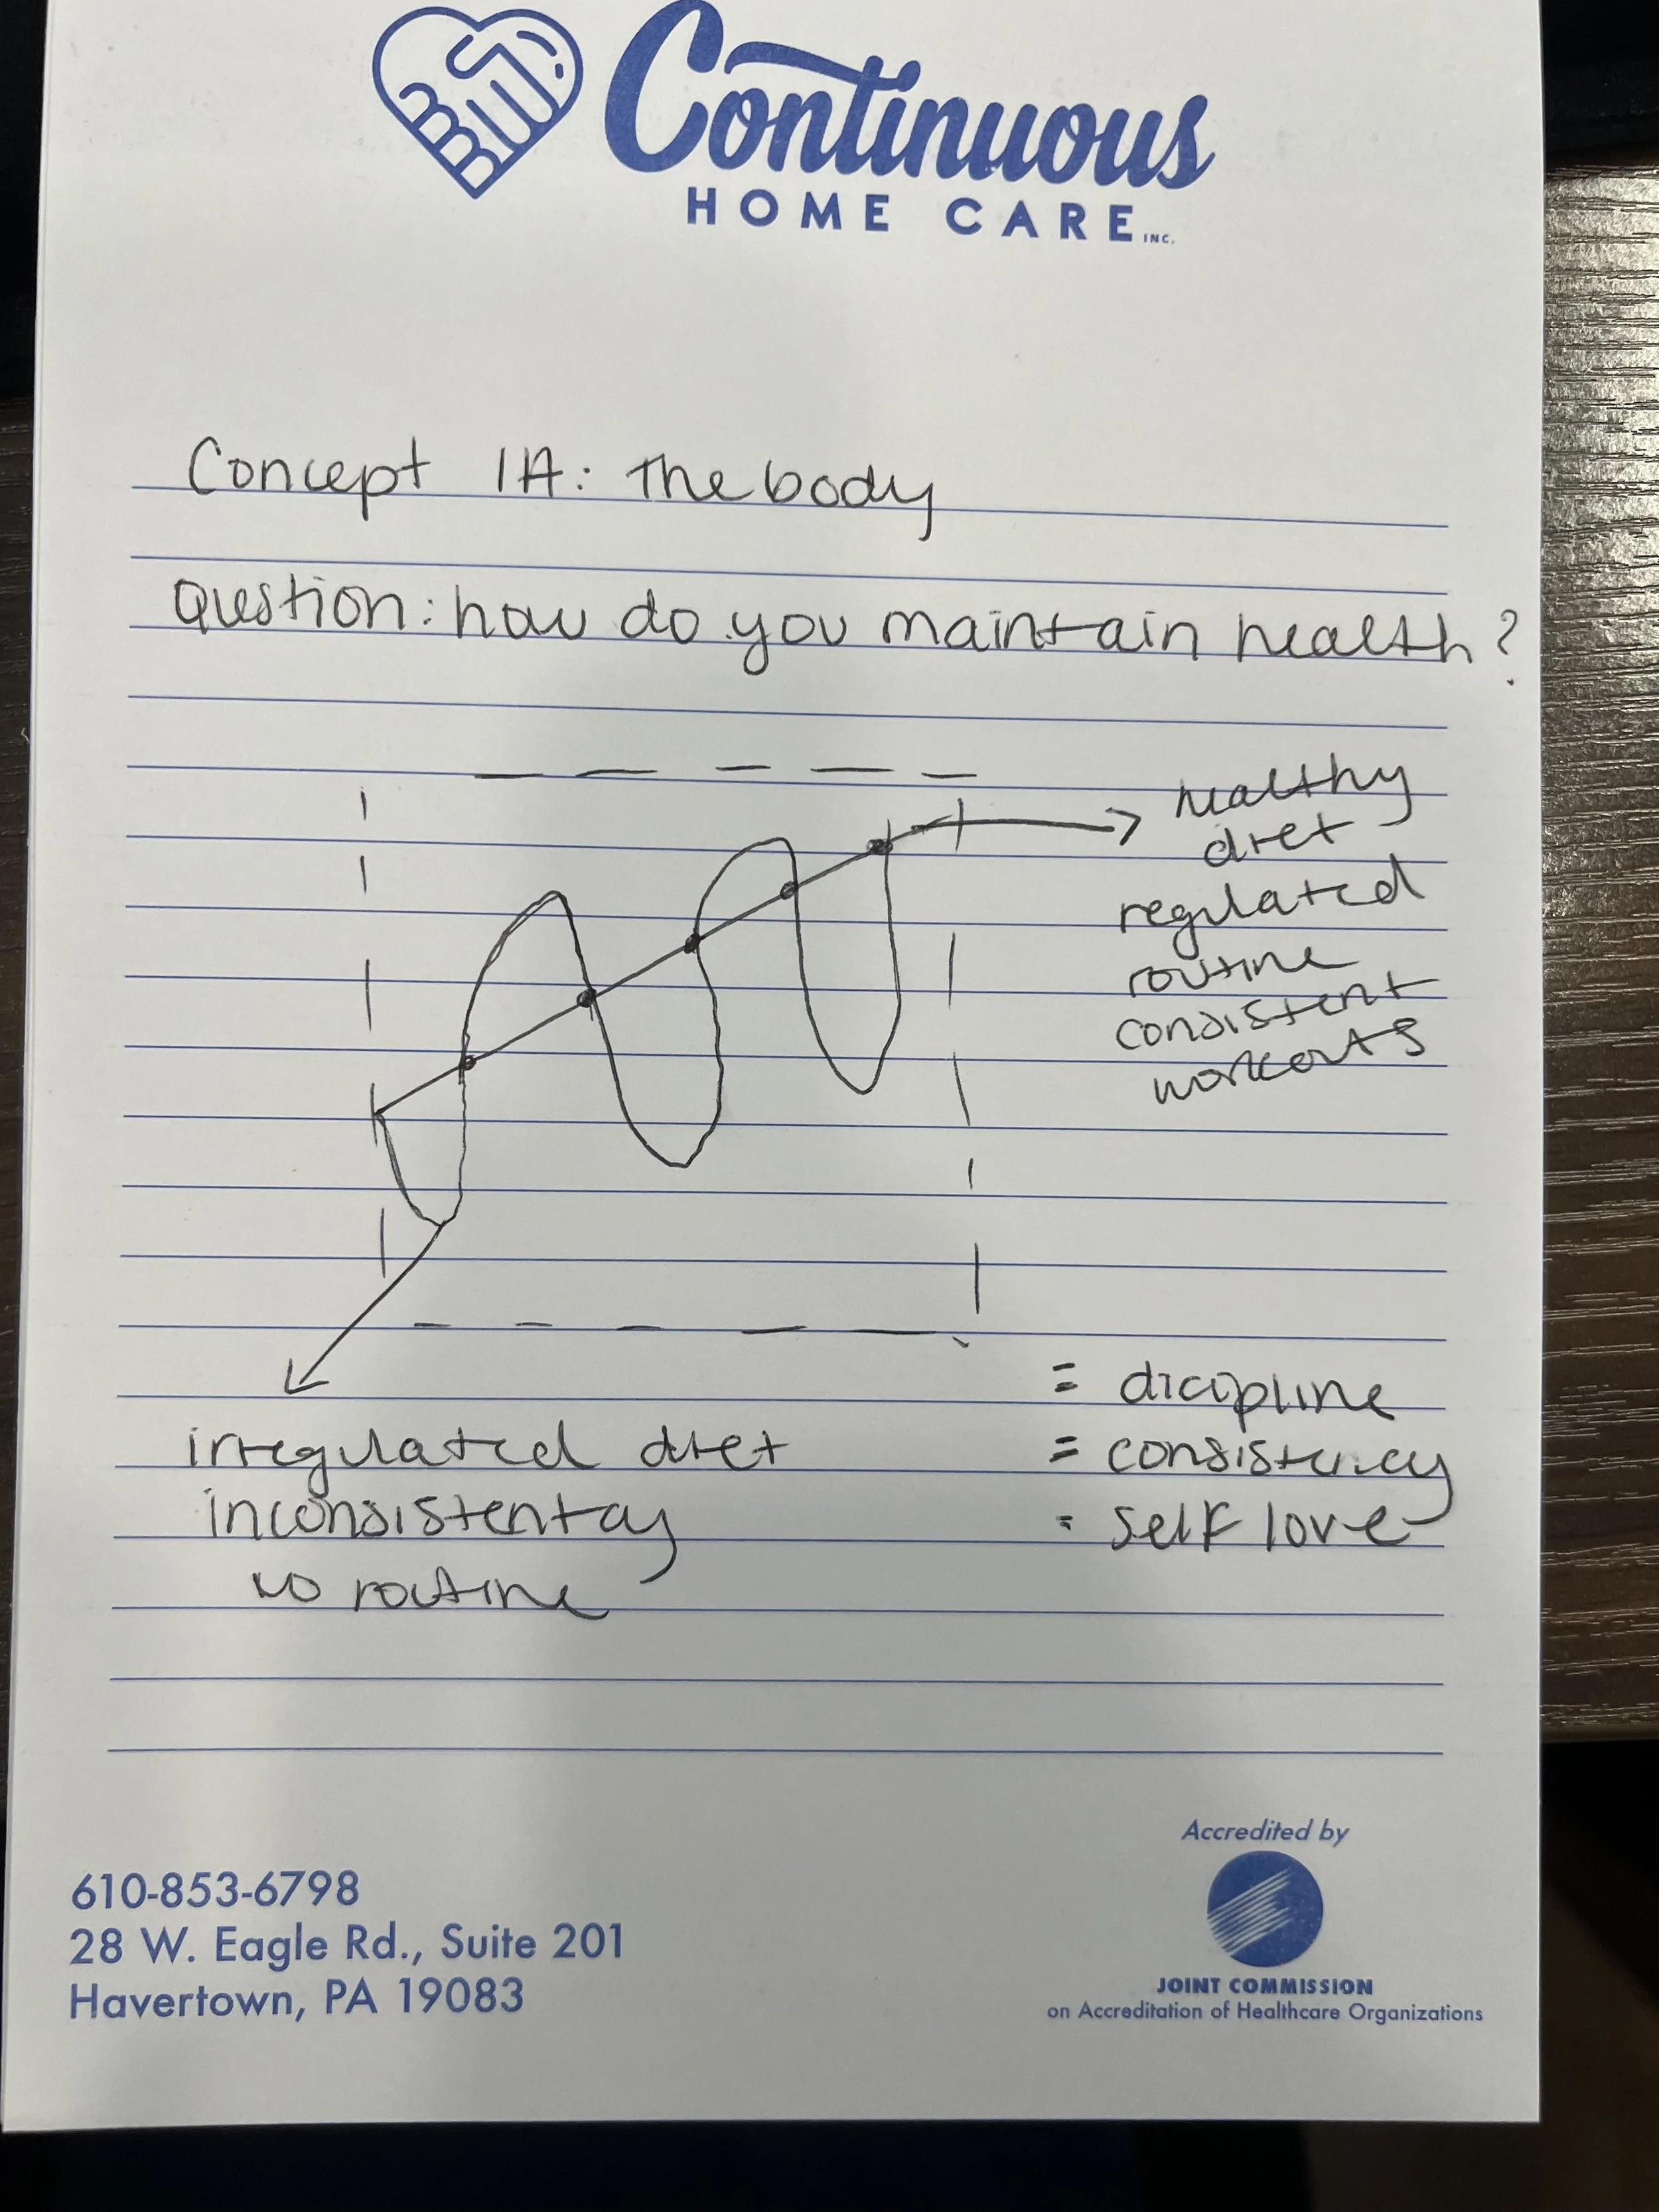 Continuous
HOME CARE INC.
Concept 1A: The body
Question: how do you maintain health?
healthy
diet
regulated
routine
consistent
workouts
irregulated diet
inconsistentcy
no routine
= dicipline
= consistency
= self love
610-853-6798
28 W. Eagle Rd., Suite 201
Havertown, PA 19083
Accredited by
JOINT COMMISSION
on Accreditation of Healthcare Organizations